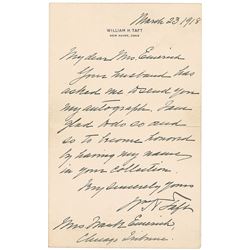 March 23 1918
WILLIAM H. TAFT
NEW HAVEN, CONN
My dear Mrs. Emerich
Your husband has
asked me to send you
my autograph. I am
glad to do so and
so to become honored
by having my name
in your collection.
Very sincerely yours
Wm H Taft
Mrs Frank Emerich,
Chicago Tribune